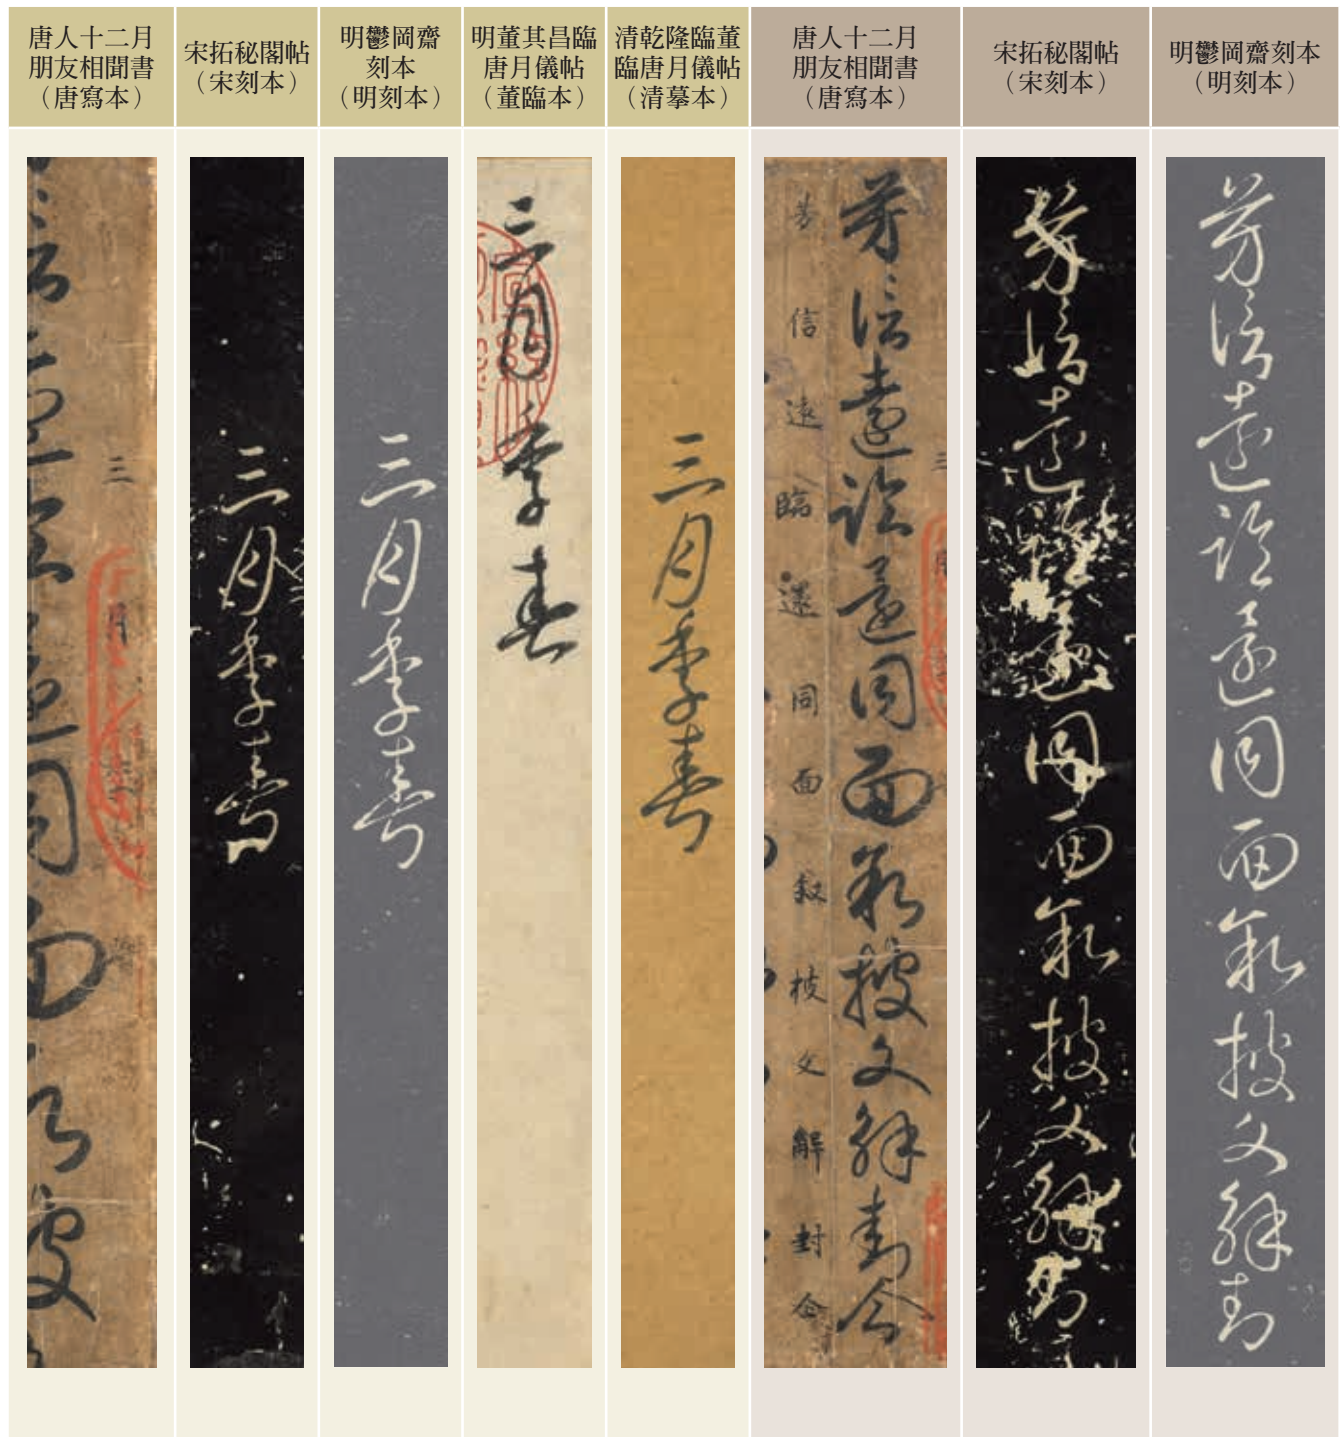 唐人十二月
朋友相聞書
（唐寫本）
宋拓秘閣帖
（宋刻本）
明鬱岡齋
刻本
（明刻本）
明董其昌臨
唐月儀帖
（董臨本）
清乾隆臨董
臨唐月儀帖
（清摹本）
唐人十二月
朋友相聞書
（唐寫本）
宋拓秘閣帖
（宋刻本）
明鬱岡齋刻本
（明刻本）
三月
三月季春
三月季春
三月季春
三月季春
芳信遠臨還同面敘披文解封令
芳信遠臨還同面敘枝文解封令
芳信遠臨還同面敘披文解封
芳信遠臨還同面敘披文解封